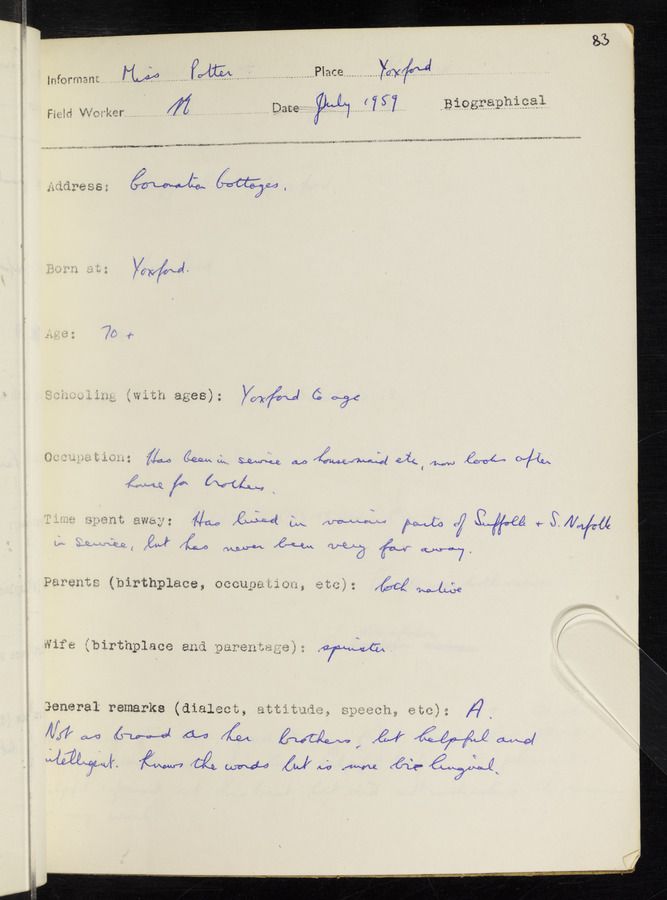 83
Informant Miss Potter Place Yoxford
Field Worker N Date July 1959 Biographical
Address: Coronation Cottages.
Born at: Yoxford.
Age: 70 +
Schooling (with ages): Yoxford to age
Occupation: Has been in service as housemaid etc, now looks after
house for brothers.
Time spent away: Has lived in various parts of Suffolk + S. Norfolk
in service, but has never been very far away.
Parents (birthplace, occupation, etc): both native
Wife (birthplace and parentage): spinster.
General remarks (dialect, attitude, speech, etc): A.
Not as broad as her brothers, but helpful and
intelligent. Knows the words but is more bi lingual.